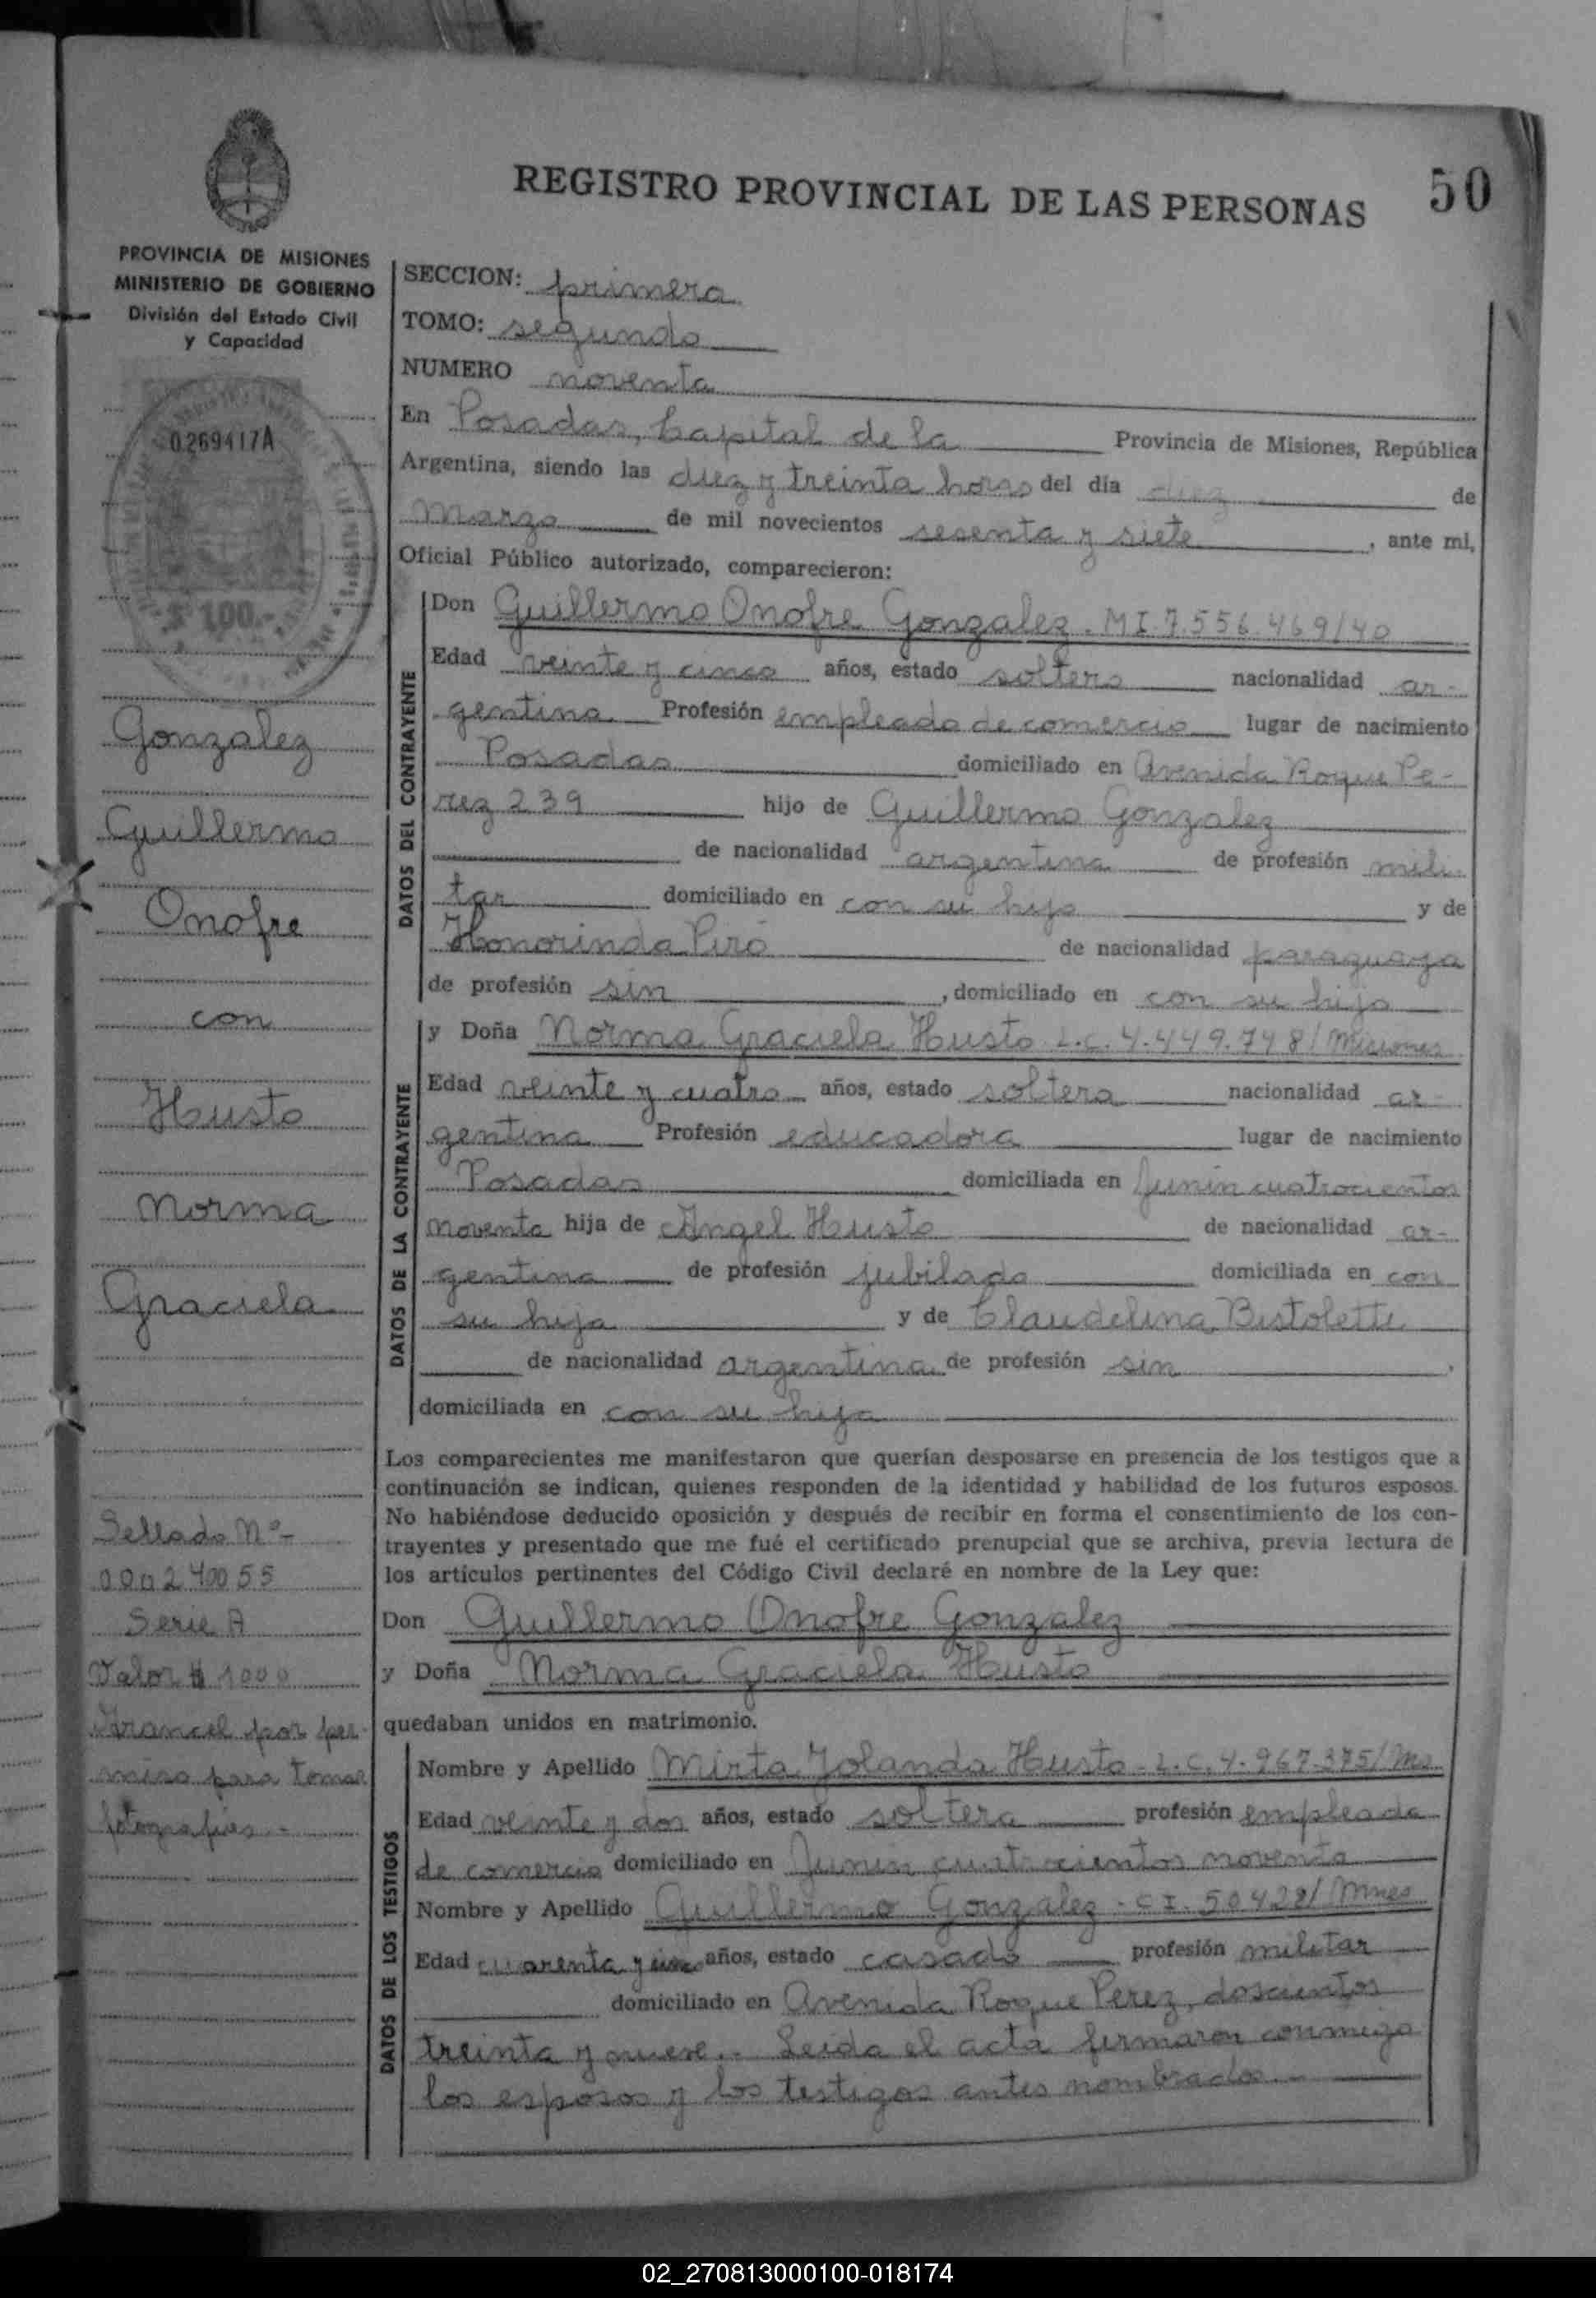 REGISTRO PROVINCIAL DE LAS PERSONAS
50
PROVINCIA DE MISIONES
MINISTERIO DE GOBIERNO
División del Estado Civil
y Capacidad
0269417A
$ 100.-
Gonzalez
Guillermo
Onofre
con
Husto
Norma
Graciela
Sellado Nº-
000240055
Serie A
Valor $ 1000
Arancel por per-
miso para tomar
fotografias -
SECCION: primera
TOMO: segundo
NUMERO noventa
En Posadas, Capital de la Provincia de Misiones, República
Argentina, siendo las diez y treinta horas del día diez de
Marzo de mil novecientos sesenta y siete, ante mi,
Oficial Público autorizado, comparecieron:
DATOS DEL CONTRAYENTE
Don Guillermo Onofre Gonzalez. MI. 7.556.469/40
Edad veinte y cinco años, estado soltero nacionalidad ar-
gentina Profesión empleado de comercio lugar de nacimiento
Posadas domiciliado en Avenida Roque Pe-
rez 239 hijo de Guillermo Gonzalez
de nacionalidad argentina de profesión mili-
tar domiciliado en con su hijo y de
Honorinda Piró de nacionalidad paraguaya
de profesión sin, domiciliado en con su hijo
DATOS DE LA CONTRAYENTE
y Doña Norma Graciela Husto L.C. 4.449.748/Misiones
Edad veinte y cuatro años, estado soltera nacionalidad ar-
gentina Profesión educadora lugar de nacimiento
Posadas domiciliada en Junin cuatrocientos
noventa hija de Angel Husto de nacionalidad ar-
gentina de profesión jubilado domiciliada en con
su hija y de Claudelina Bistoletti
de nacionalidad argentina de profesión sin,
domiciliada en con su hija
Los comparecientes me manifestaron que querían desposarse en presencia de los testigos que a
continuación se indican, quienes responden de la identidad y habilidad de los futuros esposos.
No habiéndose deducido oposición y después de recibir en forma el consentimiento de los con-
trayentes y presentado que me fué el certificado prenupcial que se archiva, previa lectura de
los artículos pertinentes del Código Civil declaré en nombre de la Ley que:
Don Guillermo Onofre Gonzalez
y Doña Norma Graciela Husto
quedaban unidos en matrimonio.
DATOS DE LOS TESTIGOS
Nombre y Apellido Mirta Yolanda Husto - L.C. 4.967.375/Ms
Edad veinte y dos años, estado soltera profesión empleada
de comercio domiciliado en Junin cuatrocientos noventa
Nombre y Apellido Guillermo Gonzalez - C I. 50428/Mnes
Edad cuarenta y años, estado casado profesión militar
domiciliado en Avenida Roque Perez, doscientos
treinta y nueve.- Leida el acta firmaron conmigo
los esposos y los testigos antes nombrados.-
02_270813000100-018174